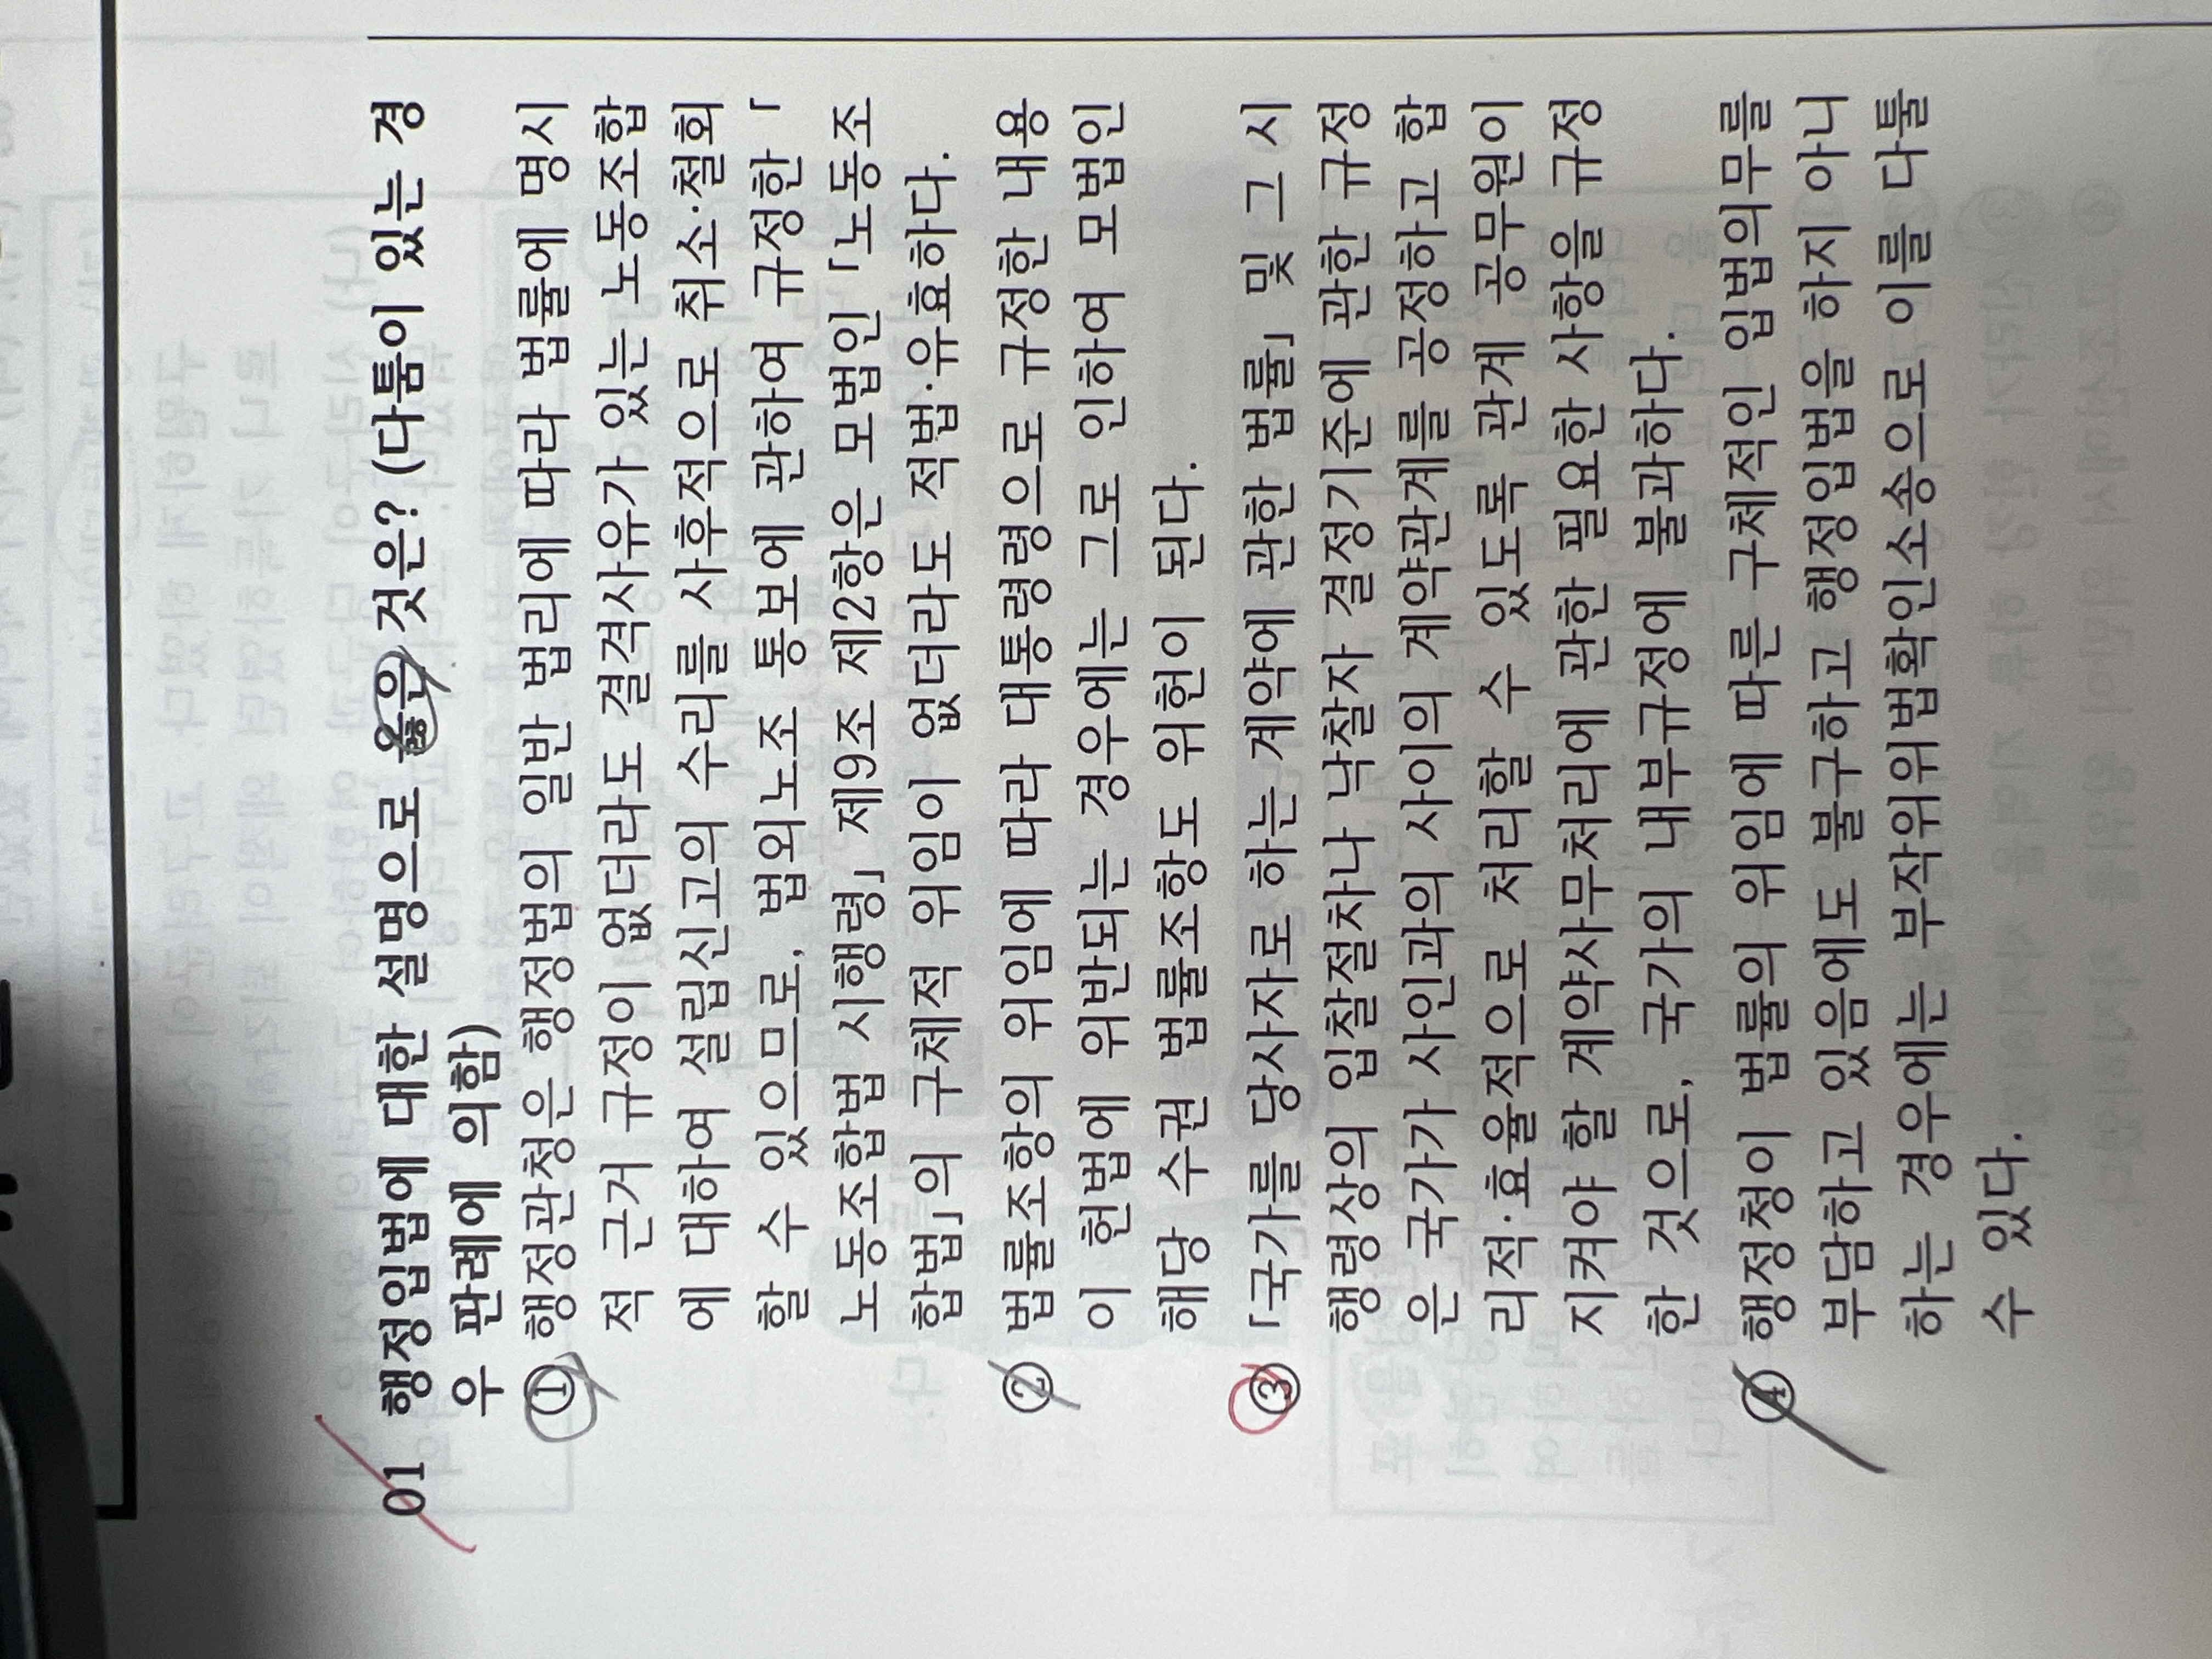 01 행정입법에 대한 설명으로 옳은 것은? (다툼이 있는 경
우 판례에 의함)
① 행정관청은 행정법의 일반 법리에 따라 법률에 명시
적 근거 규정이 없더라도 결격사유가 있는 노동조합
에 대하여 설립신고의 수리를 사후적으로 취소·철회
할 수 있으므로, 법외노조 통보에 관하여 규정한 「
노동조합법 시행령」 제9조 제2항은 모법인 「노동조
합법」의 구체적 위임이 없더라도 적법·유효하다.
② 법률조항의 위임에 따라 대통령령으로 규정한 내용
이 헌법에 위반되는 경우에는 그로 인하여 모법인
해당 수권 법률조항도 위헌이 된다.
③ 「국가를 당사자로 하는 계약에 관한 법률」 및 그 시
행령상의 입찰절차나 낙찰자 결정기준에 관한 규정
은 국가가 사인과의 사이의 계약관계를 공정하고 합
리적·효율적으로 처리할 수 있도록 관계 공무원이
지켜야 할 계약사무처리에 관한 필요한 사항을 규정
한 것으로, 국가의 내부규정에 불과하다.
④ 행정청이 법률의 위임에 따른 구체적인 입법의무를
부담하고 있음에도 불구하고 행정입법을 하지 아니
하는 경우에는 부작위위법확인소송으로 이를 다툴
수 있다.